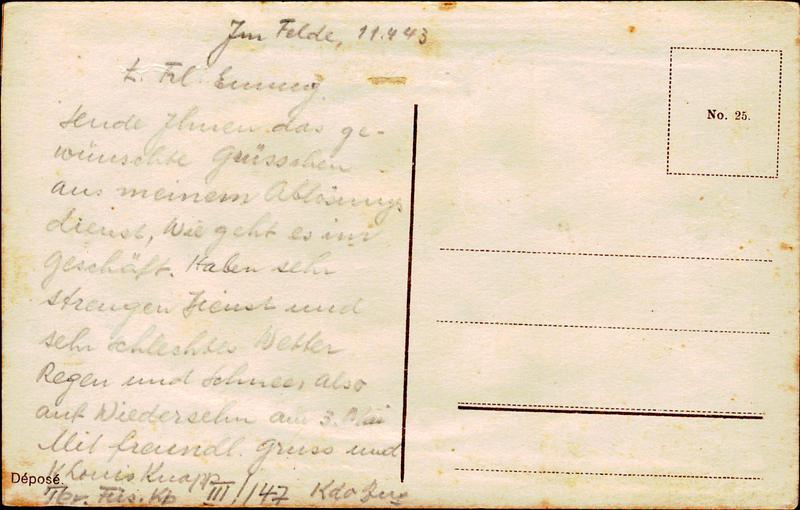 Im Felde, 11.4.43
L. Frl. Emmy
sende Ihnen das ge-
wünschte Grüsschen
aus meinem Ablösungs
dienst, Wie geht es im
Geschäft. Haben sehr
strengen Dienst und
sehr schlechtes Wetter
Regen und Schnee, also
auf Wiedersehn am 3. Mai
Mit freundl. Gruss und
Louis Knapp
Füs. Kp III/47 Kdo Zug
Déposé.
No. 25.